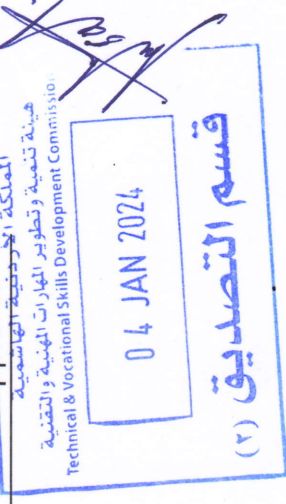 المملكة الأردنية الهاشمية
هيئة تنمية وتطوير المهارات المهنية والتقنية
Technical & Vocational Skills Development Commission
0 4 JAN 2024
قسم التصديق (٢)